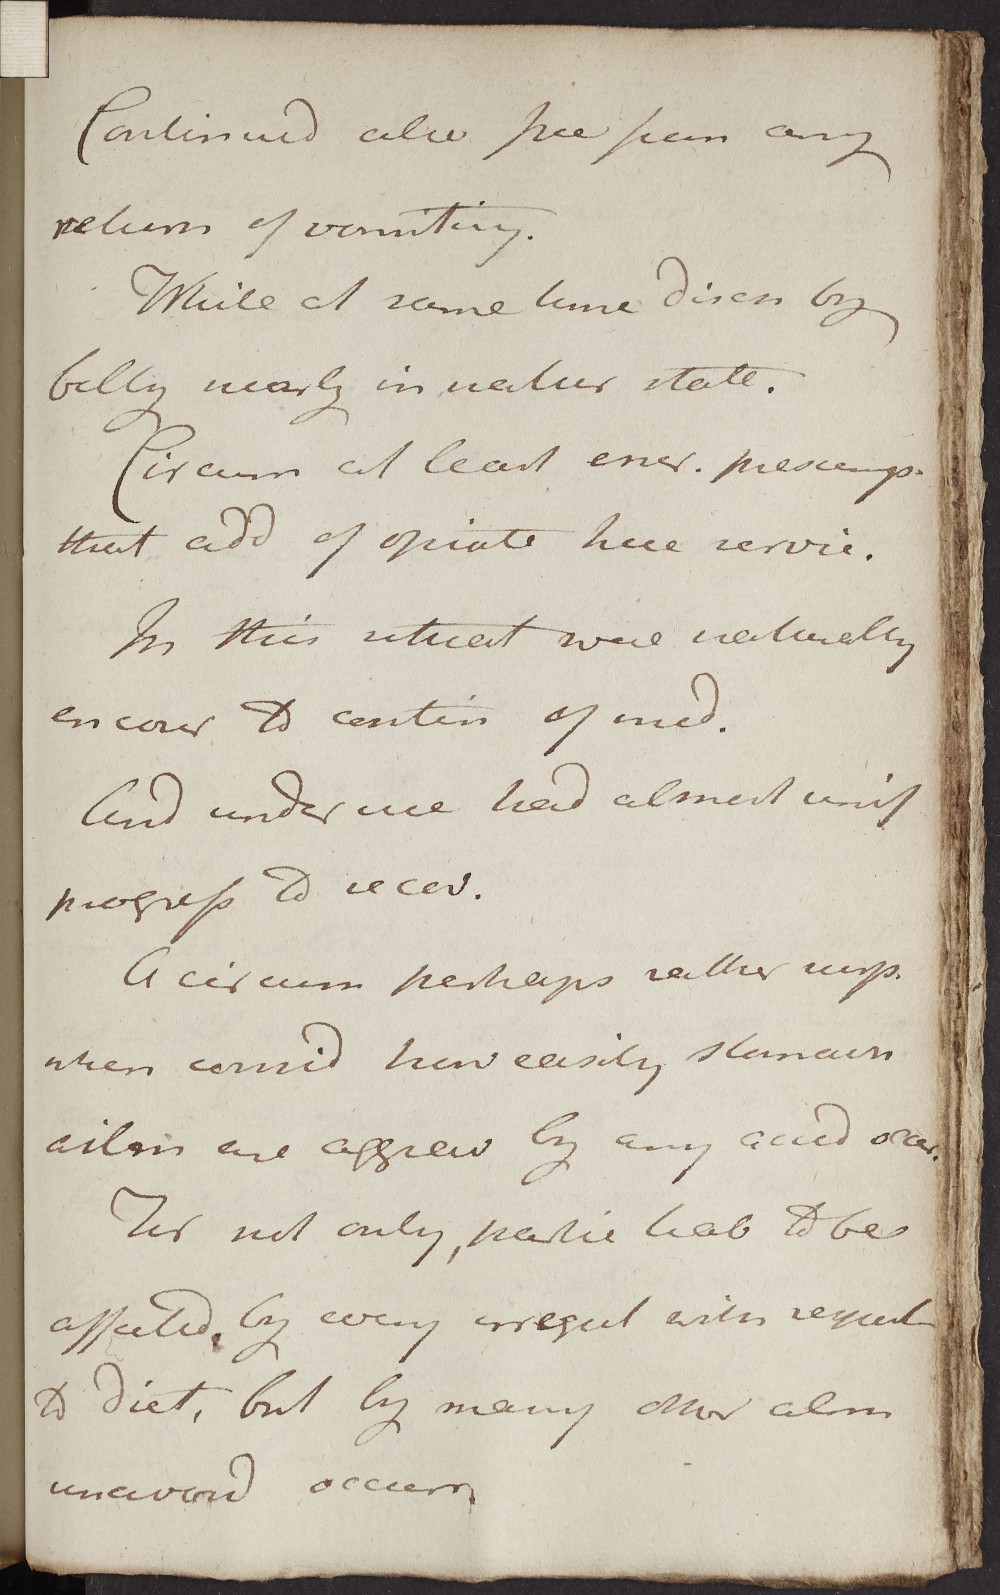 Continued also free from any
return of vomiting.
While at same time disch by
belly nearly in natur state.
Circum at least ener. presump.
that add of opiate here servic.
In this situat were naturally
encour to contin of med.
And under use had almost unif
progress to recov.
A circum perhaps rather unsp.
when consid how easily stomach
ailm are aggrav by any accid occur.
For not only, partic liab to be
affected, by every irregul with respect
to diet, but by many other alm
unavoid occurr